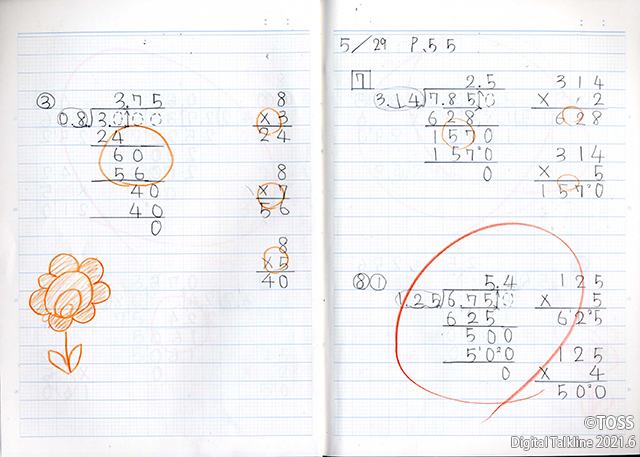 ③
3.75
0.8)3.000
24
60
56
40
40
0
8
×3
24
8
×7
56
8
×5
40
5/29 P.55
7
2.5
3.14)7.850
628
1570
1570
0
314
×2
628
314
×5
1570
⑧①
5.4
1.25)6.750
625
500
500
0
125
×5
625
125
×4
500
©TOSS
Digital Talkline 2021.6